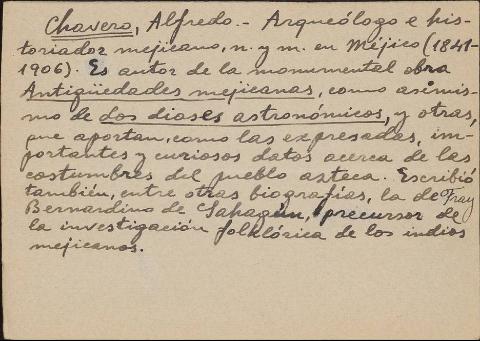 Chavero, Alfredo.- Arqueólogo e his-
toriador mejicano, n. y m. en Méjico (1841-
1906). Es autor de la monumental obra
Antigüedades mejicanas, como asímis-
mo de dos dioses astronómicos, y otras,
que aportan, como las expresadas, im-
portantes y curiosos datos acerca de las
costumbres del pueblo azteca. Escribió
también, entre otras biografías, la de Fray
Bernardino de Sahagún, precursor de
la investigación folklórica de los indios
mejicanos.